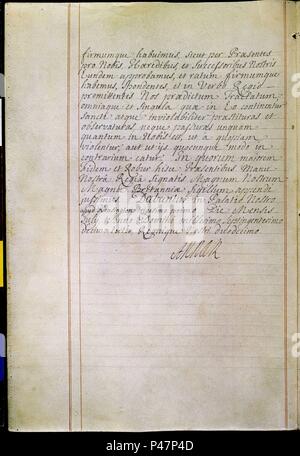 firmumque habuimus, sicut per Præsentes
pro Nobis, Hæredibus, et Successoribus Nostris
Eundem approbamus, et ratum firmumque
habemus, Spondentes, et in Verbo Regio
promittentes Nos prædictum Tractatum,
omniaque et Singula quæ in Eo continentur
Sancte atque inviolabiliter præstituras et
observaturas neque passuras unquam
quantum in Nobis est, ut a quopiam
violentur, aut ut iis quocunque modo in
contrarium eatur. In quorum majorem
fidem et Robur hisce Præsentibus Manu
Nostra Regia Signatis Magnum Nostrum
Magnæ Britanniæ Sigillum appendi
jussimus. Dabantur in Palatio Nostro
primo Die Mensis
Julij Anno Domini millesimo Septingentesimo
decimo tertio Regnique Nostri duodecimo.
Anna R
alamy
Image ID: P47P4D
www.alamy.com